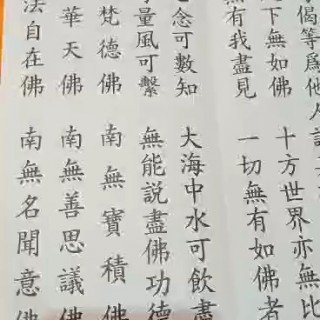 偈等爲他人
下無如佛
十方世界亦無比
有我盡見
一切無有如佛者
念可數知
大海中水可飲盡
量風可繫
無能說盡佛功德
梵德佛
南無寶積佛
華天佛
南無善思議佛
法自在佛
南無名聞意佛